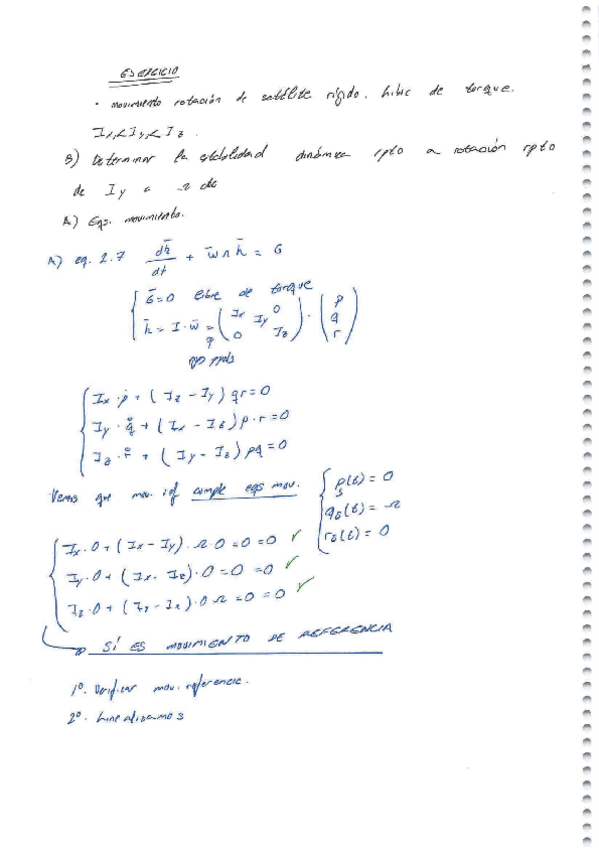 EJERCICIO
· movimiento rotación de satélite rígido. libre de torque.
Ix<Iy<Iz.
B) Determinar la estabilidad dinámica rpto a rotación rpto
de Iy a Ω cte
A) Eqs. movimiento.
A) eq. 2.7 dh̄/dt + w̄∧h̄ = G
Ḡ=0 libre de torque
h̄ = I·w̄ = (Ix 0 Iy 0 Iz)·(p q r)
ejes pples
Ix·ṗ + (Iz - Iy) qr=0
Iy·q̇ + (Ix - Iz) p·r=0
Iz·ṙ + (Iy - Iz) pq=0
Vemos que mov. ref cumple eqs mov.
ps(t) = 0
qs(t) = Ω
rs(t) = 0
Ix·0+(Ix-Iy)·Ω·0=0=0 ✓
Iy·0+(Ix-Iz)·0=0=0 ✓
Iz·0+(Iy-Ix)·0Ω=0=0 ✓
SÍ ES MOVIMIENTO DE REFERENCIA
1º. Verificar mov. referencia.
2º. Linealizamos